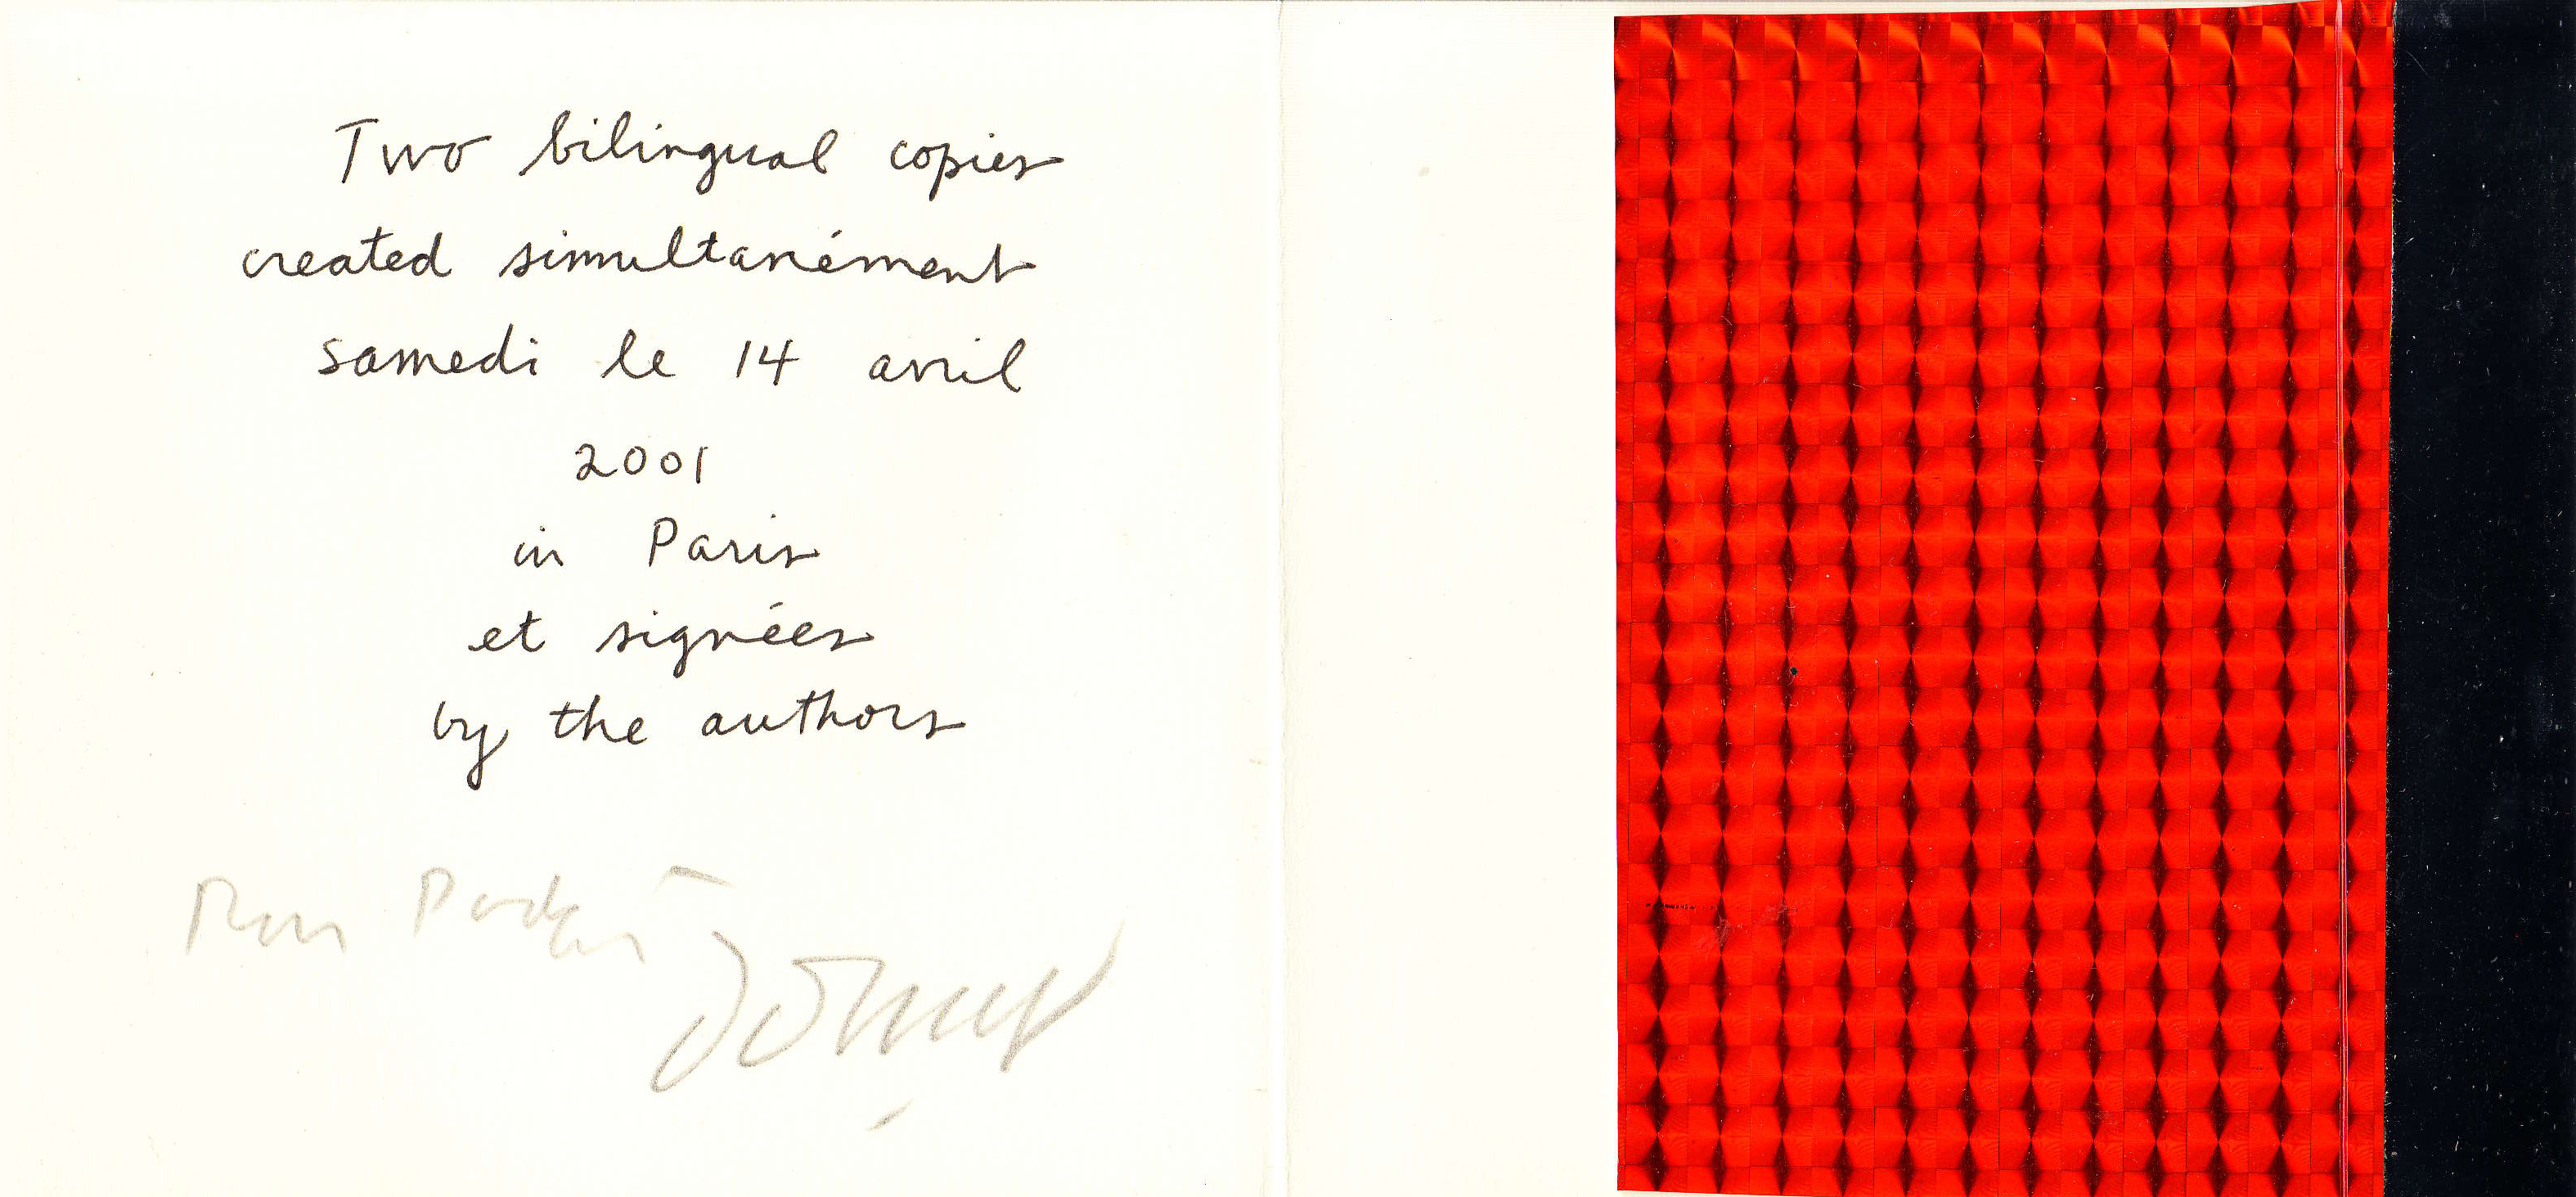 Two bilingual copies
created simultanément
samedi le 14 avril
2001
in Paris
et signées
by the authors